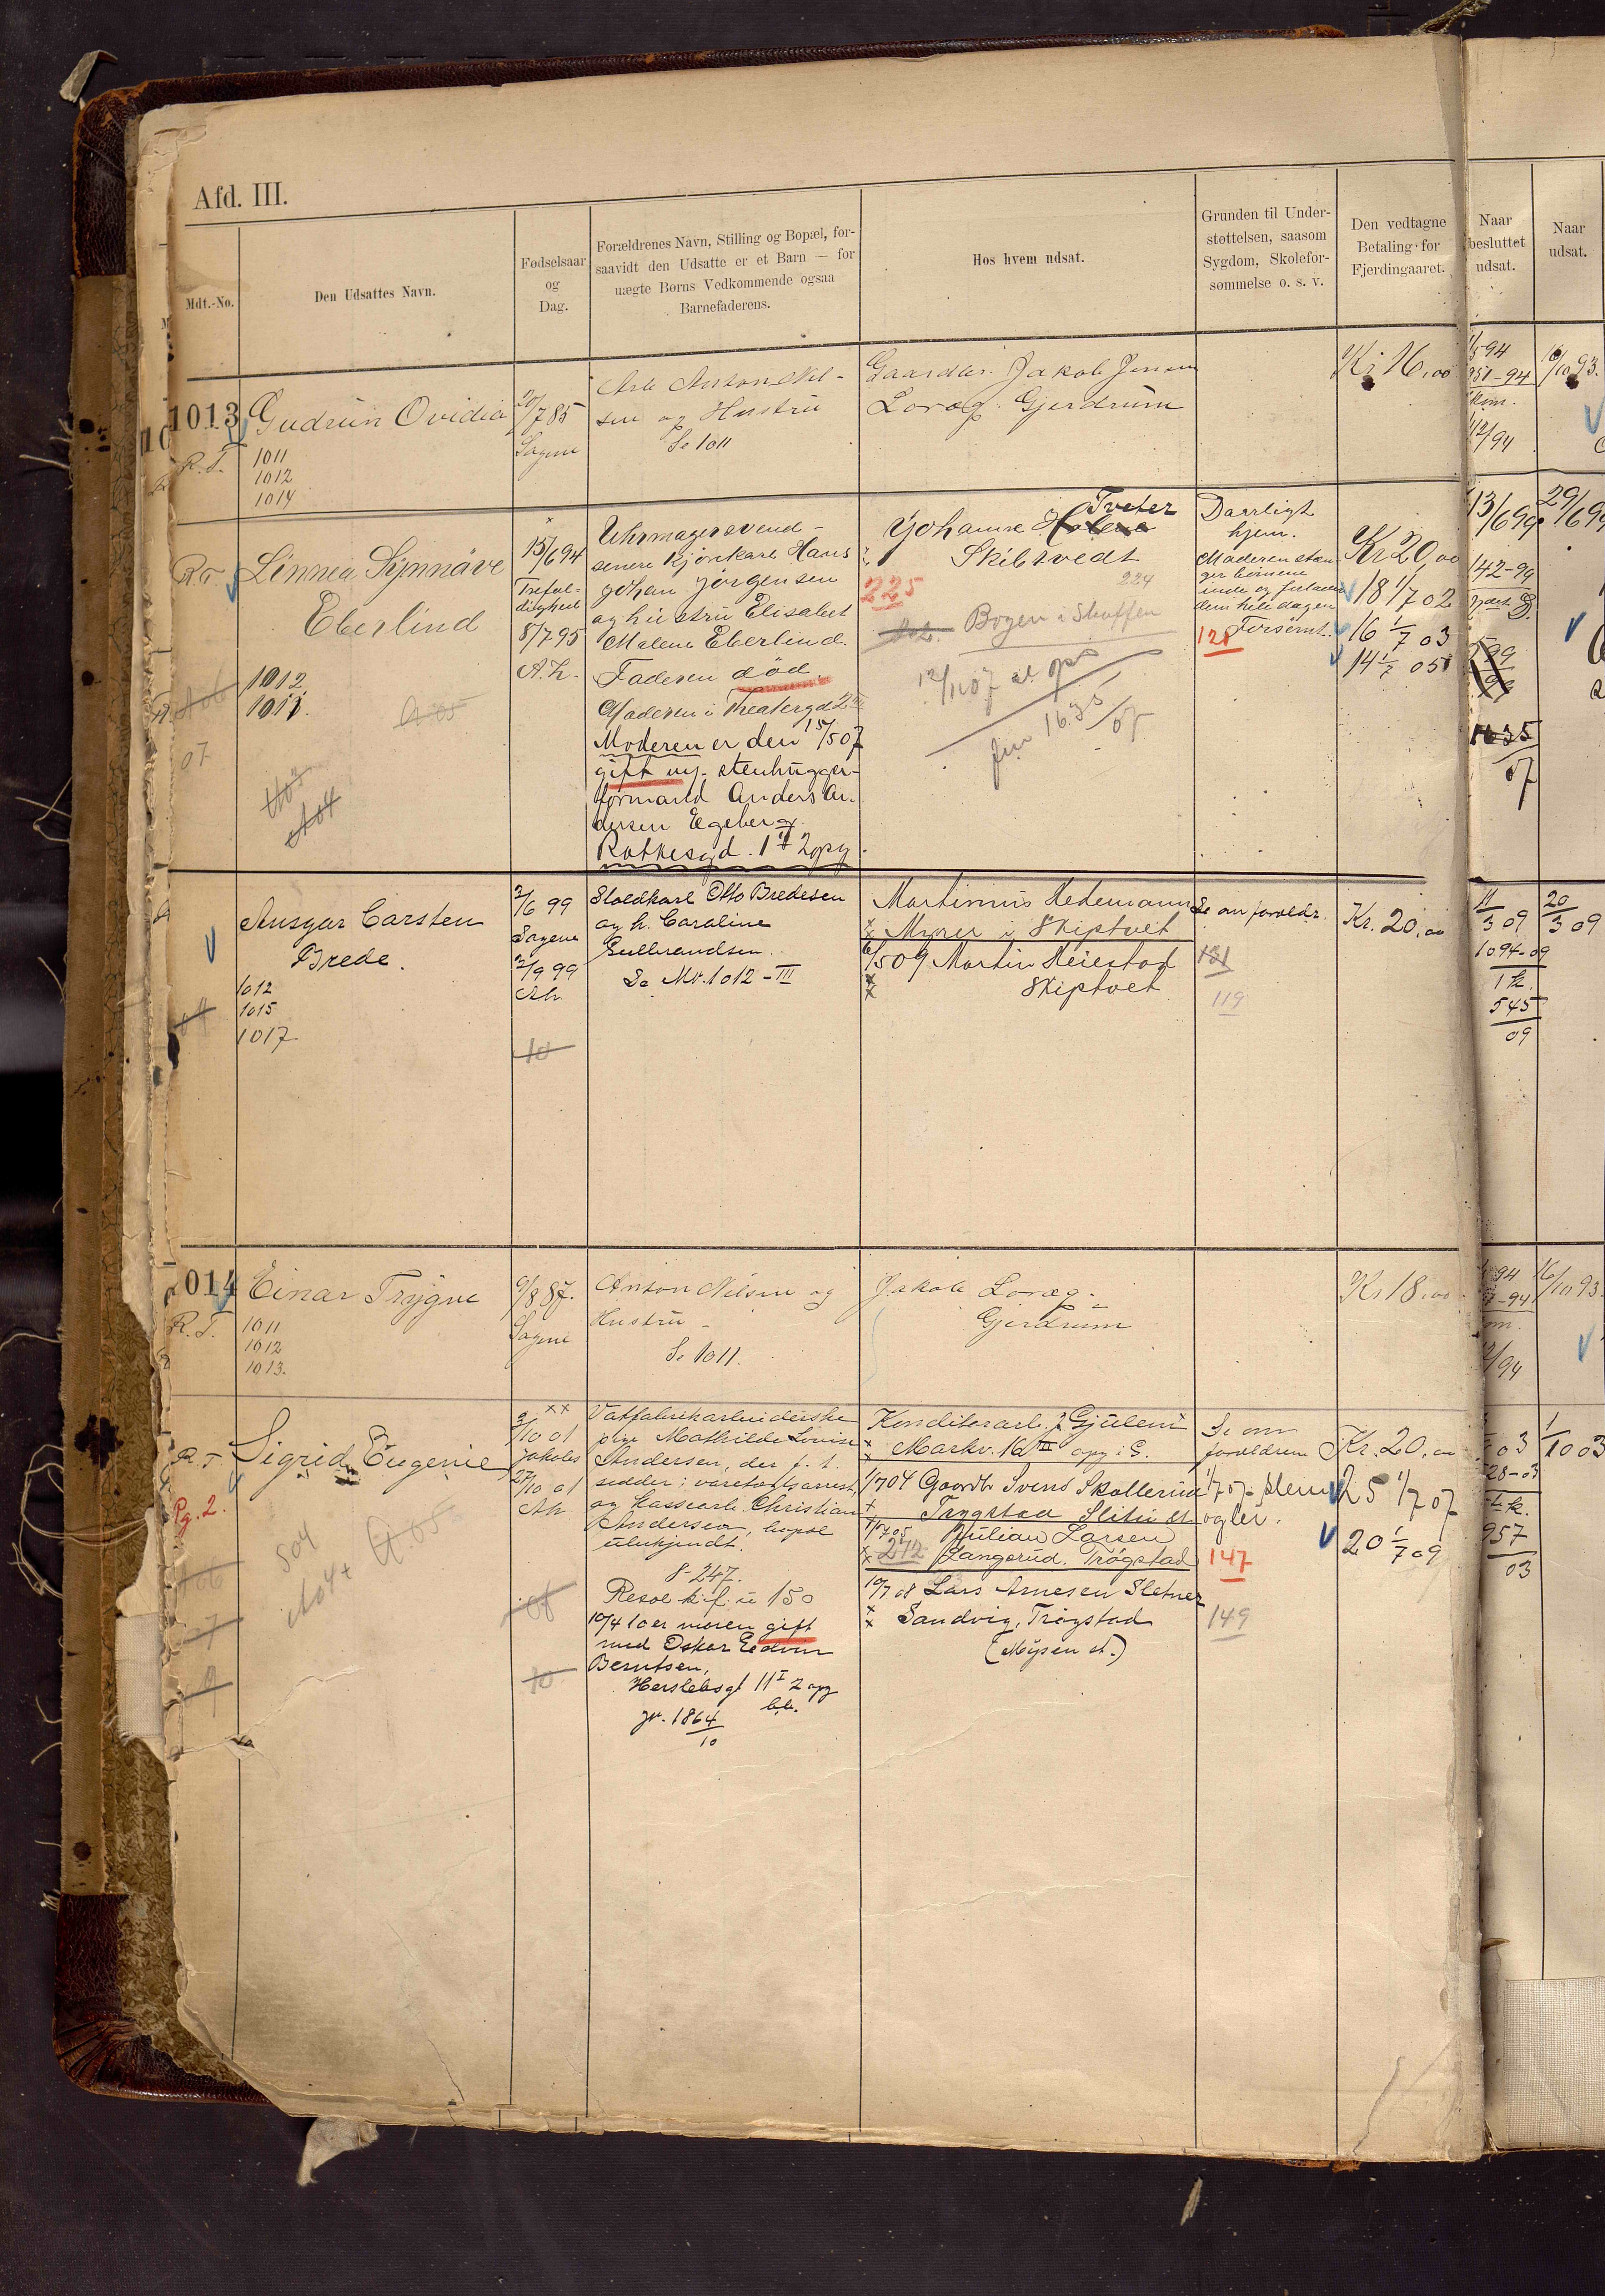 Afd. III.
Mdt.-No.
Den Udsattes Navn.
Fødselsaar
og
Dag.
Forældrenes Navn, Stilling og Bopæl, for-
saavidt den Udsatte er et Barn — for
uægte Børns Vedkommende ogsaa
Barnefaderens.
Hos hvem udsat.
Grunden til Under-
støttelsen, saasom
Sygdom, Skolefor-
sømmelse o. s. v.
Den vedtagne
Betaling for
Fjerdingaaret.
Naar
besluttet
udsat.
Naar
udsat.
1013
R.T.
Gudrun Ovidia
1011
1012
1014
20/7 85
Sagene
Arb Anton Nil-
sen og Hustru
Se 1011
Gaardbr. Jakob Jensen
Loræg. Gjerdrum
Kr 16,00
951-94
12/94
16/10 93.
R.T.
Linnea Synnöve
Eberlind
1012.
1011.
A 05
A 06
07
15/6 94
Trefol-
dighed
8/7 95
A.h.
Uhrmagersvend -
senere kjørekarl Hans
Johan Jørgensen
og hustru Elisabet
Malene Eberlind.
Faderen død.
Moderen i Theatergd 2
Moderen er den 15/5 07
gift m/ stenhugger-
formand Anders An-
dersen Egeberg.
Ratkesgd. 1 II 2 opg.
Johanne Holene Tveter
Skibtvedt
225
224
Bogen i Skuffen
12/11 07
fra 1635/07
Daarligt
hjem.
Moderen stæn-
ger børnene
inde og forlader
dem hele dagen
Forsømt.
128
Kr 20,00
18 1/7 02
16 1/7 03
14 1/7 05
13/6 99
142-99
1635
07
29/6 99
Ansgar Carsten
Brede.
1012
1015
1017
2/6 99
Sagene
2/9 99
Ah.
10
Stoldkarl Otto Bredesen
og h. Caroline
Gulbrandsen.
Se Nr. 1012 - III
Martinius Hedemann
Myrer i Skiptvet
6/5 09 Martin Heiestad
Skiptvet
Se om foreldr.
131
119
Kr. 20,00
11
3 09
1094-09
1 k.
545
09
20
3 09
014
R.T.
Einar Trygve
1011
1012
1013.
9/8 87.
Sagene
Anton Nilsen og
Hustru -
Se 1011.
Jakob Loræg.
Gjerdrum
Kr 18,00
94
-94
/94
16/10 93.
R.T
Pg. 2.
Sigrid Eugenie
504
A 04+
A. 05
A 06
7
9
xx
3/10 01
Jakobs
27/10 01
Ah
08
10
Vatfabrikarbeiderske
pige Mathilde Lovise
Andersen, der f. t.
sedder i varetægtsarrest,
og kassearb. Christian
Andersen, bopæl
ubekjendt.
8-247.
Resol. k. f. u 150
10/4 10 er moren gift
med Oskar Edvin
Berntsen,
Herslebsgt 11 I 2 opg
b.b.
jr. 1864
10
Konditorarb. J. Gjulem
Markv. 16 III opg. i G.
1/7 04 Gaardbr Svend Skallerud
Trygstad Slitu st
1/7 05 Julian Larsen
272 Langsrud. Trøgstad
10/7 08 Lars Arnesen Sletner
Sandvig, Trøgstad
(Mysen st.)
Se om
foreldrene
1/7 07
147
149
Kr. 20,00
25 1/7 07
20 1/7 09
03
28-03
957
03
1/10 03